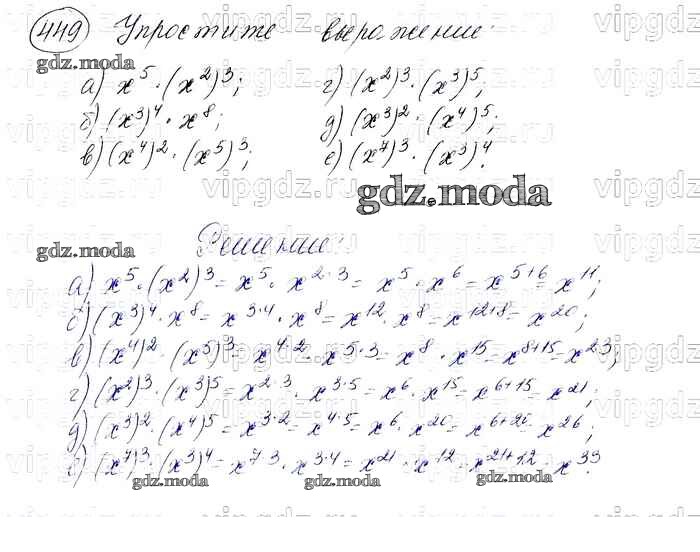 449 Упростите выражение
gdz.moda
а) x⁵ · (x²)³; г) (x²)³ · (x³)⁵;
б) (x³)⁴ · x⁸; д) (x³)² · (x⁴)⁵;
в) (x⁴)² · (x⁵)³; е) (x⁷)³ · (x³)⁴.
gdz.moda
gdz.moda Решение:
а) x⁵ · (x²)³ = x⁵ · x²·³ = x⁵ · x⁶ = x⁵⁺⁶ = x¹¹;
б) (x³)⁴ · x⁸ = x³·⁴ · x⁸ = x¹² · x⁸ = x¹²⁺⁸ = x²⁰;
в) (x⁴)² · (x⁵)³ = x⁴·² · x⁵·³ = x⁸ · x¹⁵ = x⁸⁺¹⁵ = x²³;
г) (x²)³ · (x³)⁵ = x²·³ · x³·⁵ = x⁶ · x¹⁵ = x⁶⁺¹⁵ = x²¹;
д) (x³)² · (x⁴)⁵ = x³·² · x⁴·⁵ = x⁶ · x²⁰ = x⁶⁺²⁰ = x²⁶;
е) (x⁷)³ · (x³)⁴ = x⁷·³ · x³·⁴ = x²¹ · x¹² = x²¹⁺¹² = x³³.
gdz.moda gdz.moda gdz.moda